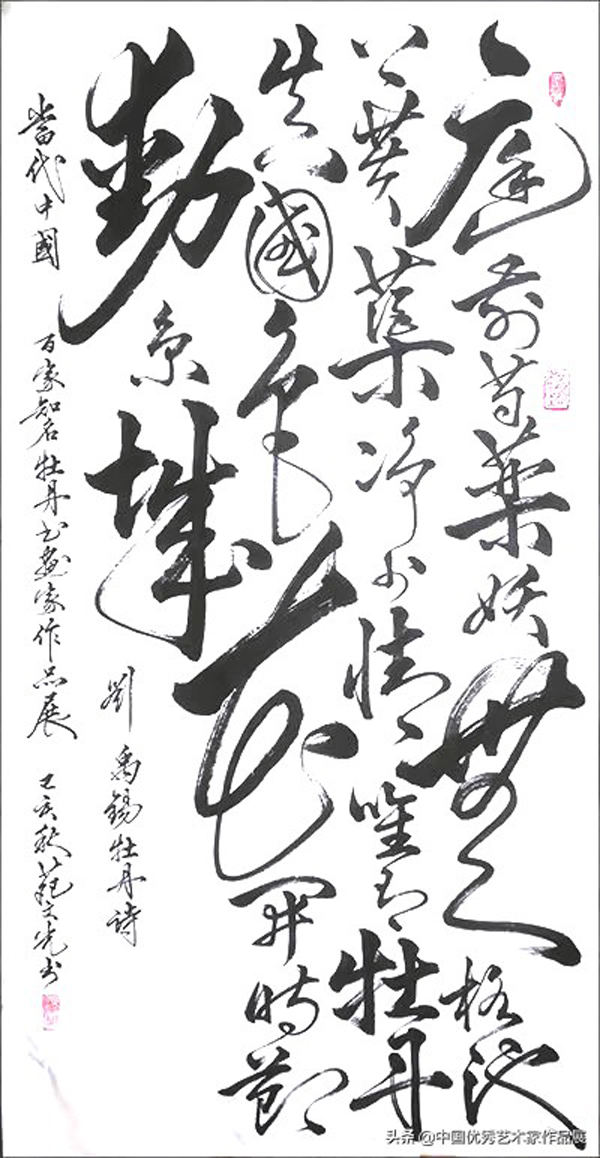 庭前芍藥妖無格池
上芙蕖净少情唯有牡丹
真國色花開時節
動京城
劉禹錫牡丹詩
當代中國 百家知名牡丹书画家作品展 己亥秋范文光书
头条 @中国优秀艺术家作品展